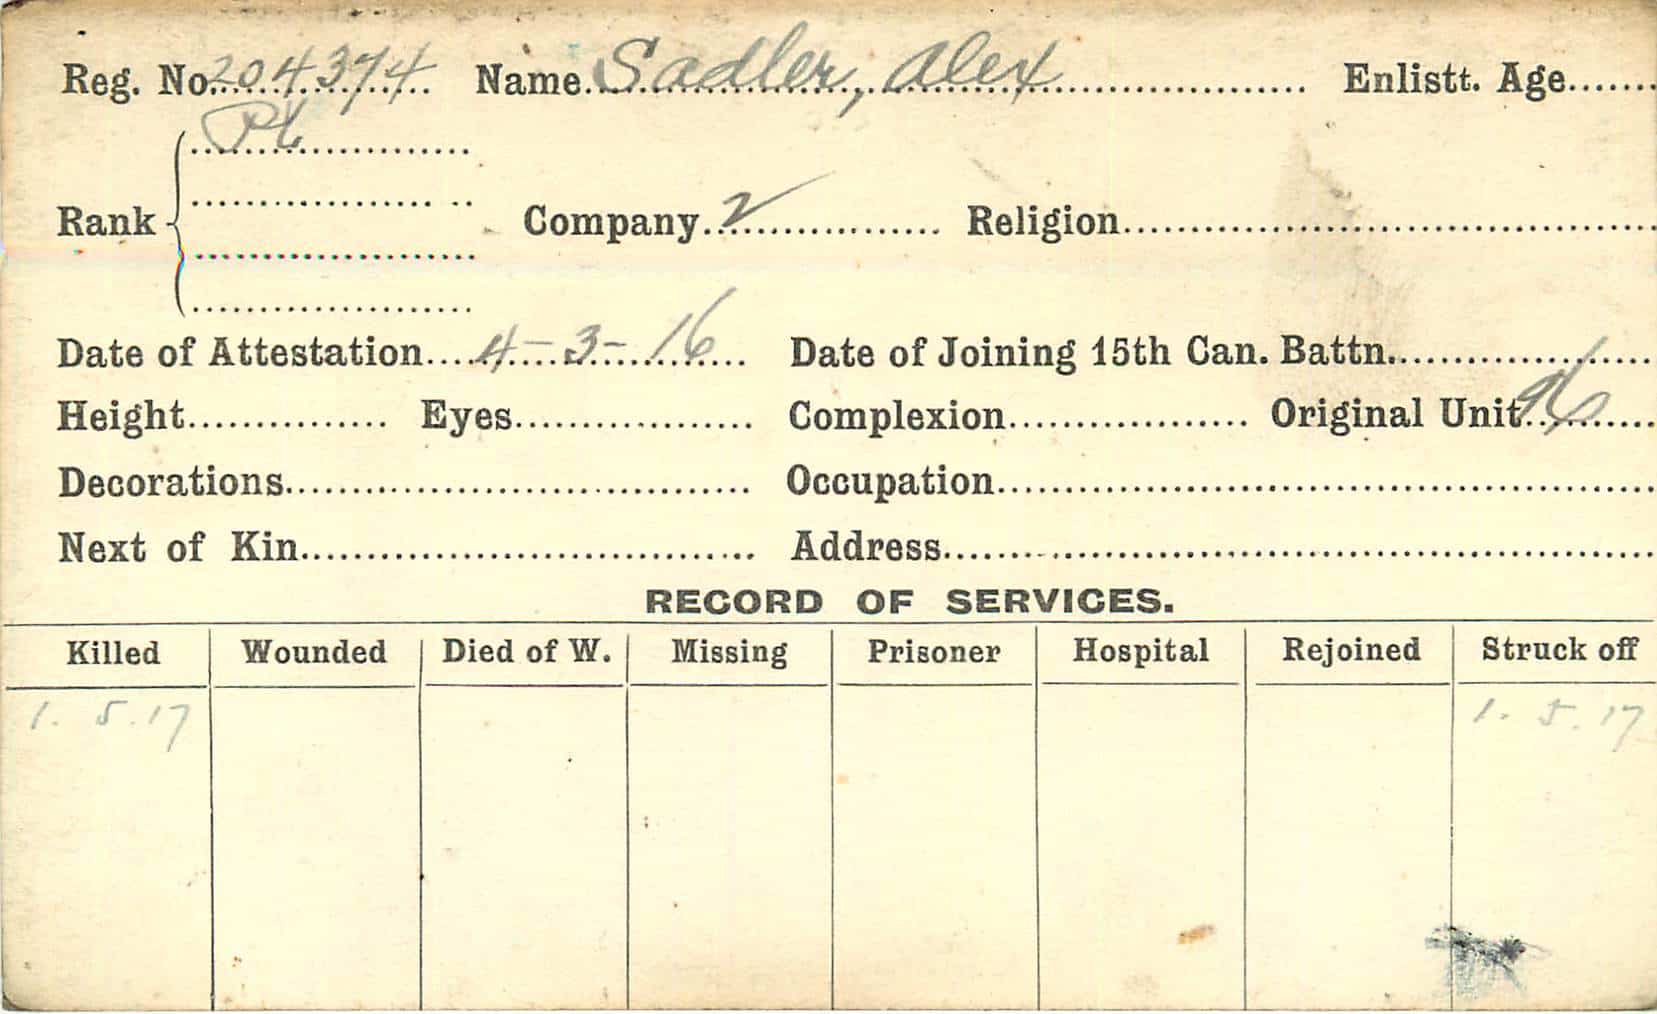 Reg. No. 204374 Name Sadler, Alex Enlistt. Age
Pte
Rank Company 2 Religion
Date of Attestation 4-3-16 Date of Joining 15th Can. Battn.
Height Eyes Complexion Original Unit 96
Decorations Occupation
Next of Kin Address
RECORD OF SERVICES.
Killed Wounded Died of W. Missing Prisoner Hospital Rejoined Struck off
1. 5. 17 1. 5. 17